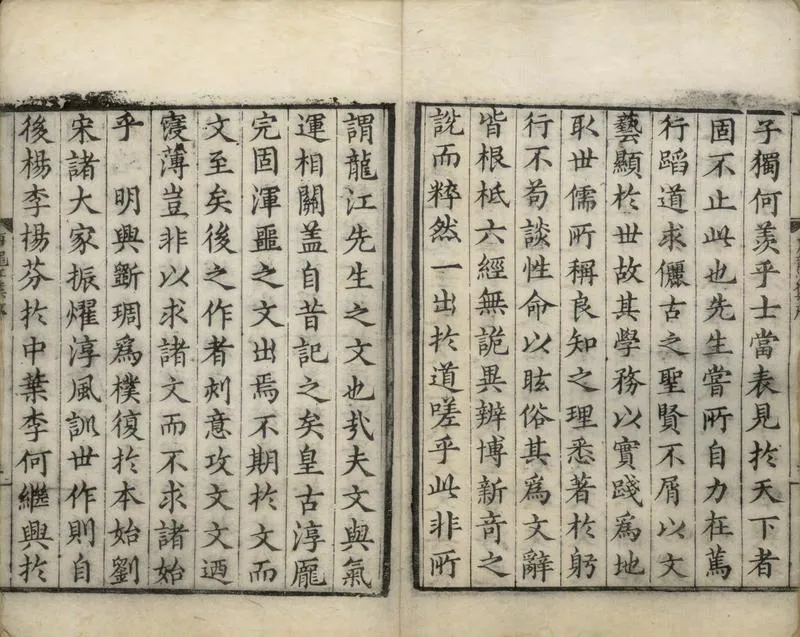 子獨何羨乎士當表見於天下者
固不止此也先生嘗所自力在篤
行蹈道求儷古之聖賢不屑以文
藝顯於世故其學務以實踐爲地
耴世儒所稱良知之理悉著於躬
行不苟談性命以眩俗其爲文辭
皆根柢六經無詭異辨博新奇之
說而粹然一出於道嗟乎此非所
謂龍江先生之文也㦲夫文與氣
運相關盖自昔記之矣皇古淳龐
完固渾噩之文出焉不期於文而
文至矣後之作者刻意攻文文迺
寖薄豈非以求諸文而不求諸始
乎　明興斵琱爲樸復於本始劉
宋諸大家振燿淳風訓世作則自
後楊李揚芬於中葉李何繼興於